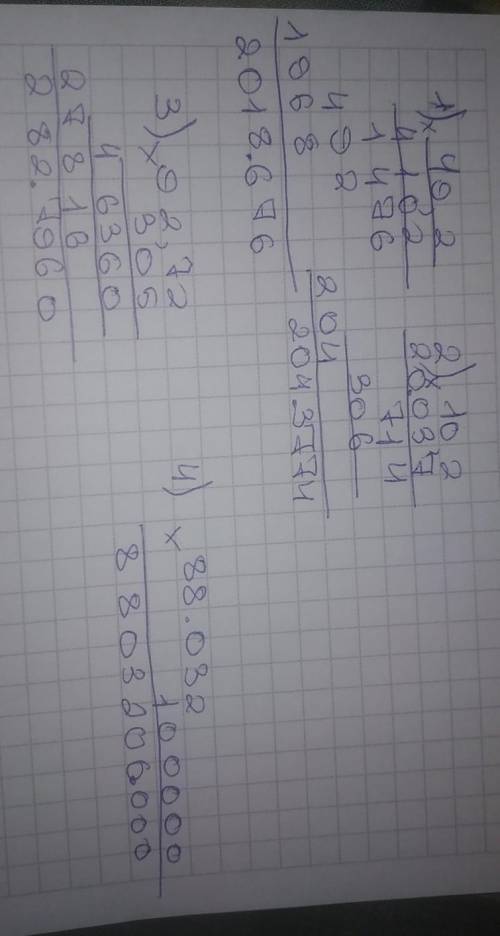 1) × 492
4103
1476
492
1968
2018.676
2) × 102
20.037
714
306
204
204.3774
3) × 92,72
305
46360
27816
282.7960
4) × 88.032
100000